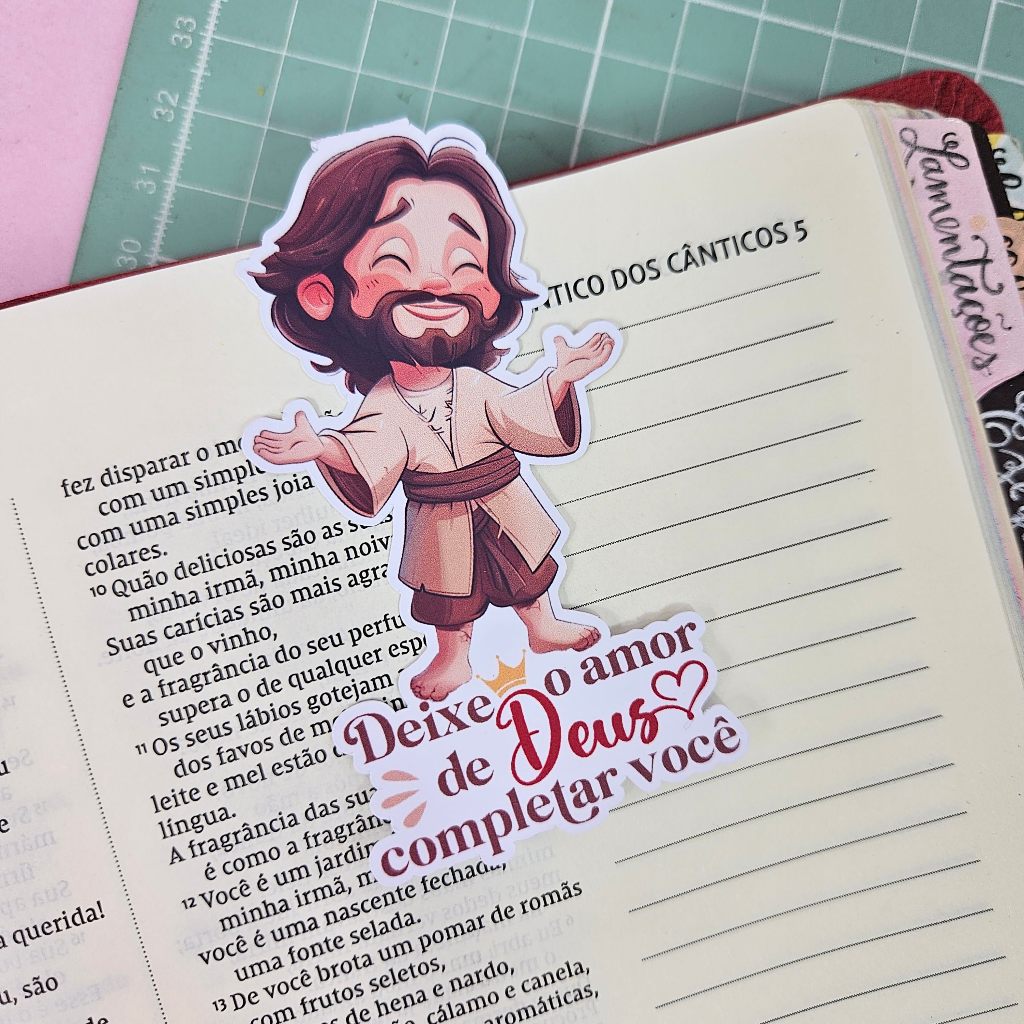 33
32
31
30
NTICO DOS CÂNTICOS 5
Lamentações
fez disparar o
com um simples
com uma simples joia
colares.
10 Quão deliciosas são as
minha irmã, minha noiv
Suas carícias são mais agra
que o vinho,
e a fragrância do seu perfu
supera o de qualquer esp
11 Os seus lábios gotejam
dos favos de
leite e mel estão
língua.
A fragrância das sua
é como a fragrân
12 Você é um jardim
minha irmã,
você é uma nascente fechada,
uma fonte selada.
13 De você brota um pomar de romãs
com frutos seletos,
de hena e nardo,
cálamo e canela,
aromáticas,
a querida!
são
Deixe o amor
de Deus
completar você